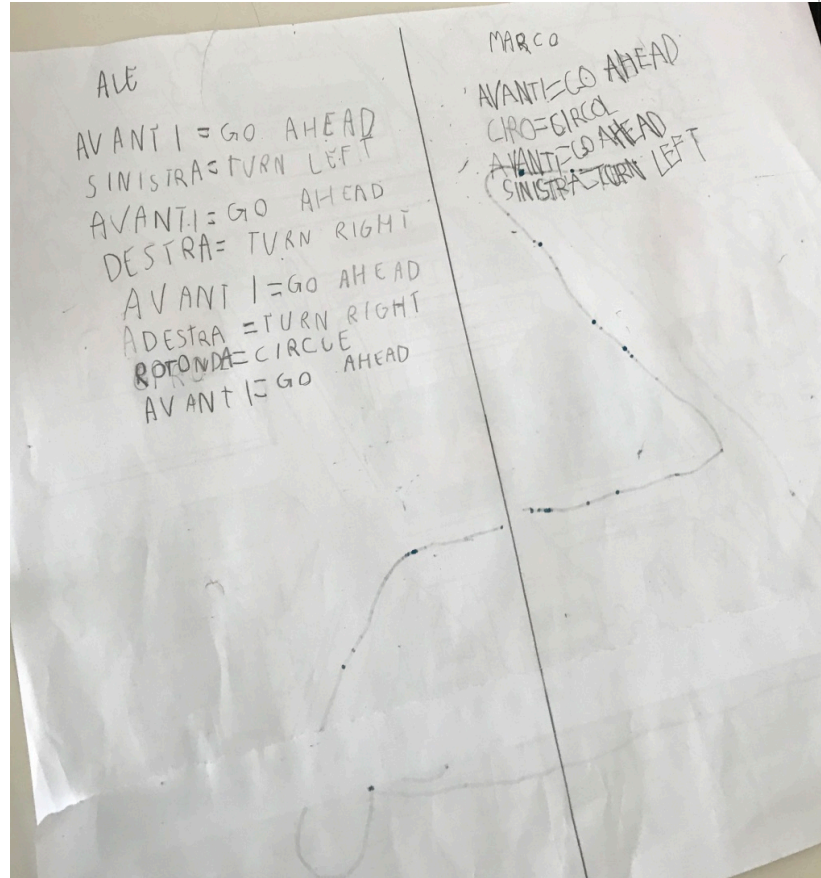 ALE
AVANTI = GO AHEAD
SINISTRA = TURN LEFT
AVANTI = GO AHEAD
DESTRA = TURN RIGHT
AVANTI = GO AHEAD
ADESTRA = TURN RIGHT
ROTONDA = CIRCLE
AVANTI = GO AHEAD
MARCO
AVANTI = GO AHEAD
CIRO = CIRCOL
AVANTI = GO AHEAD
SINISTRA = TURN LEFT